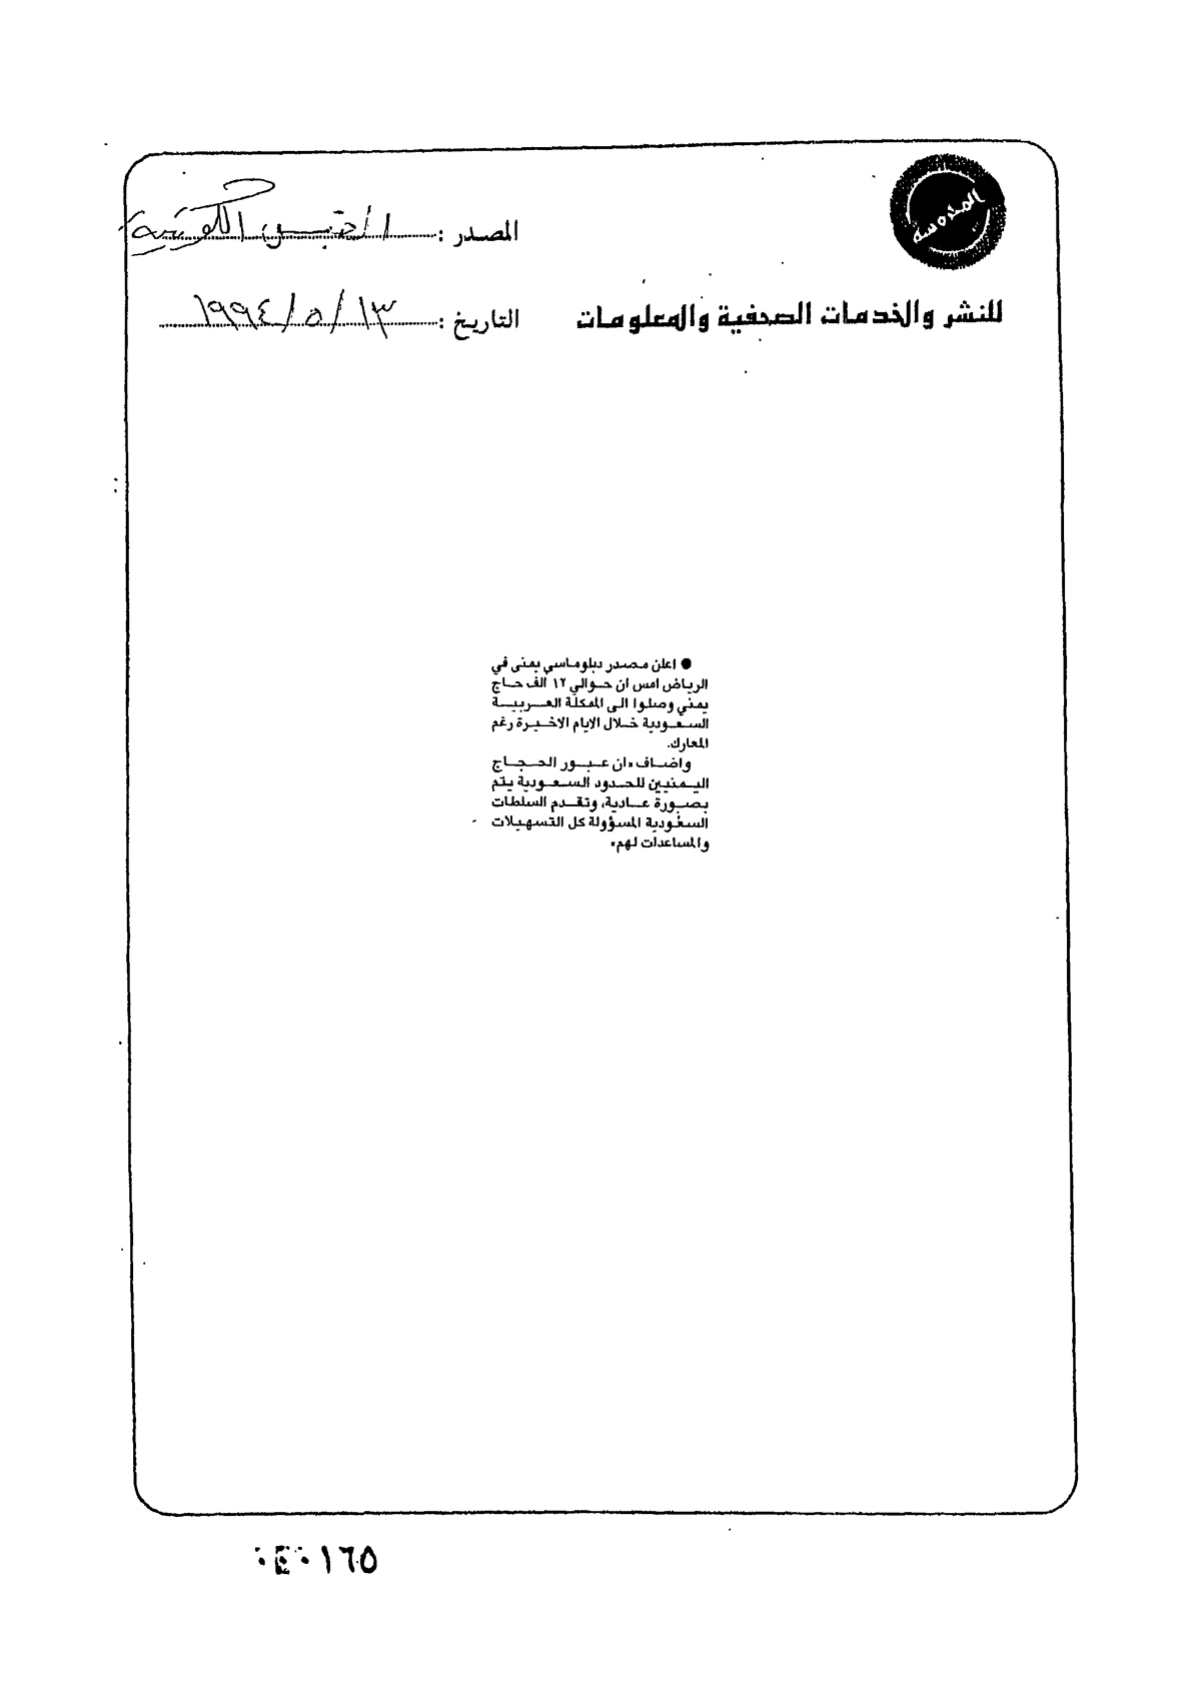 المصدر : القبس الكويتية
للنشر والخدمات الصحفية والمعلومات
التاريخ : ١٣/٥/١٩٩٤
● اعلن مصدر دبلوماسي يمني في
الرياض امس ان حوالي ١٢ ألف حاج
يمني وصلوا الى المملكة العربية
السعودية خلال الايام الاخيرة رغم
المعارك.
واضاف «ان عبور الحجاج
اليمنيين للحدود السعودية يتم
بصورة عادية، وتقدم السلطات
السعودية المسؤولة كل التسهيلات
والمساعدات لهم»